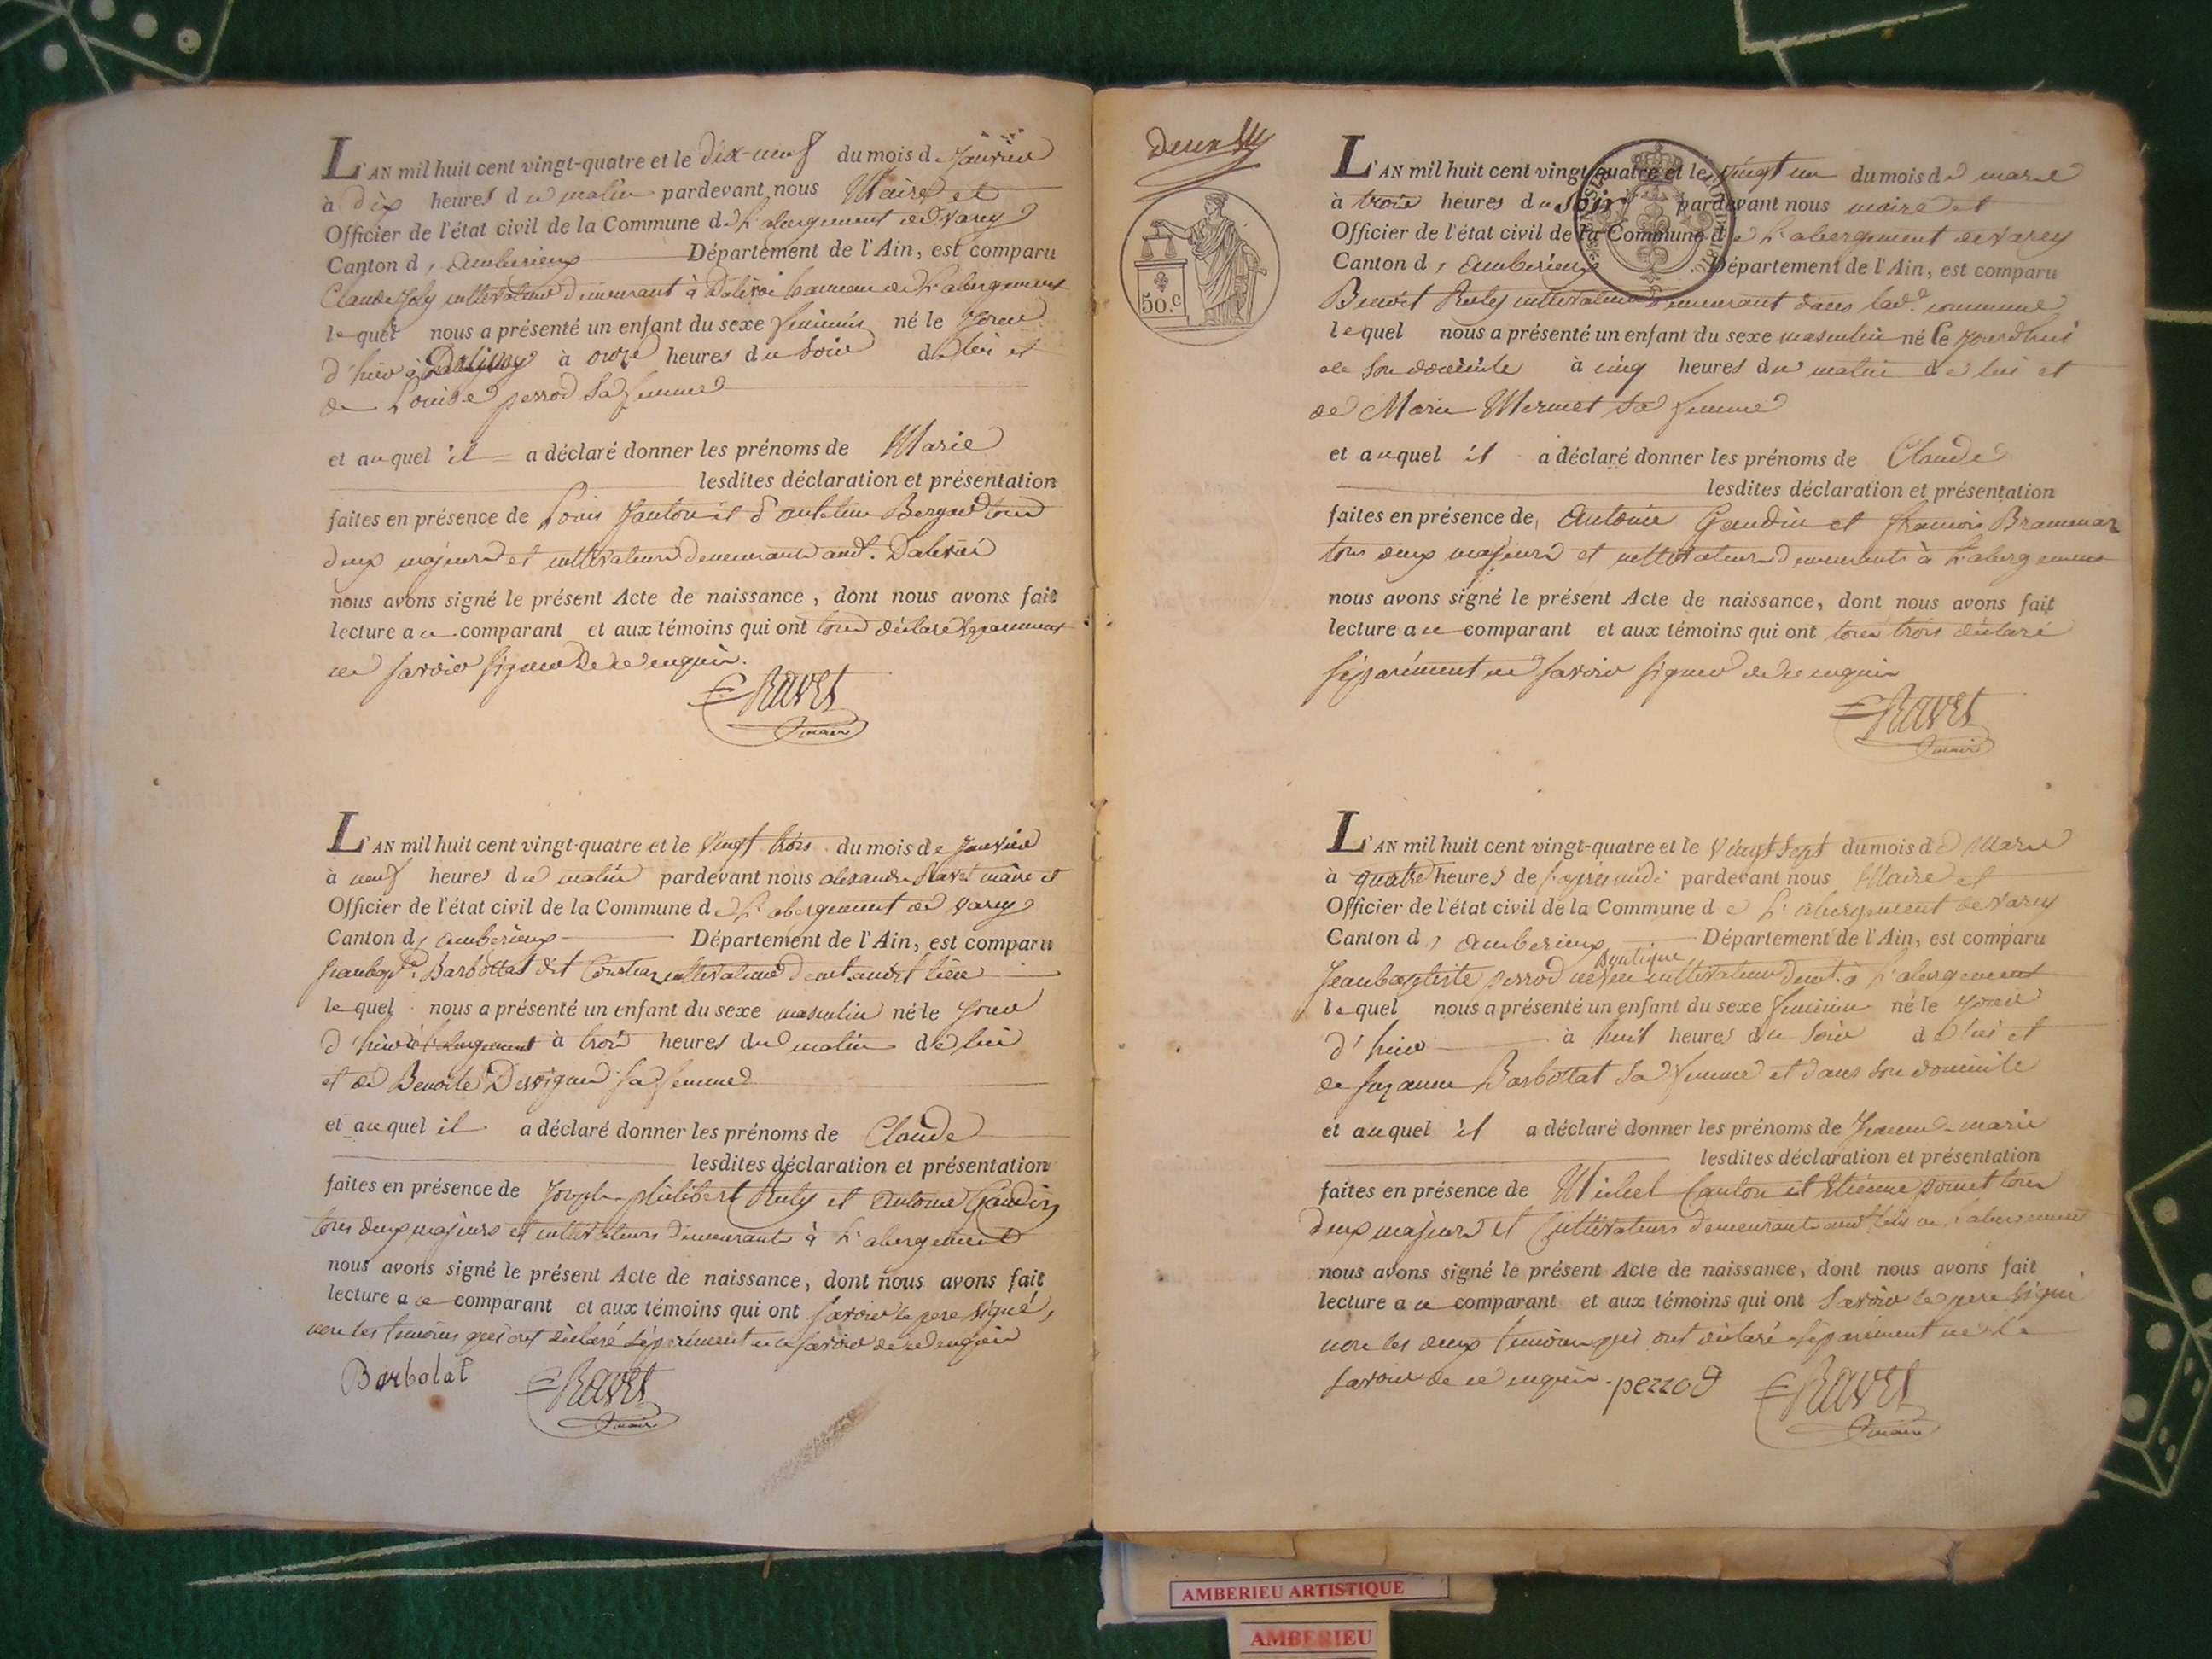 L'AN mil huit cent vingt-quatre et le dix-neuf du mois de Janvier
à dix heures du matin pardevant nous Maire et
Officier de l'état civil de la Commune de L'abergement de varey
Canton d'amberieux Département de l'Ain, est comparu
Claude Joly cultivateur demeurant à Dalivoi hameau de L'abergement
lequel nous a présenté un enfant du sexe feminin né le Jour
d'hier à à onze heures du soir de lui et
de Louise perrod sa femme
et auquel il a déclaré donner les prénoms de Marie
lesdites déclaration et présentation
faites en présence de Louis Janton et d'antelme Berger tous
deux majeurs et cultivateurs demeurants aud. Dalivoi
nous avons signé le présent Acte de naissance, dont nous avons fait
lecture au comparant et aux témoins qui ont tous déclaré séparement
ne savoir signer de ce enquis.
Ravet
maire
L'AN mil huit cent vingt-quatre et le vingt trois du mois de Janvier
à neuf heures du matin pardevant nous alexandre Ravet maire et
Officier de l'état civil de la Commune de L'abergement de varey
Canton d'amberieux Département de l'Ain, est comparu
Jeanbapte. Barbottat dit cultivateur demt audit lieu
lequel nous a présenté un enfant du sexe masculin né le Jour
d'hier à l'abergement à trois heures du matin de lui
et de Benoite sa femme
et auquel il a déclaré donner les prénoms de Claude
lesdites déclaration et présentation
faites en présence de Joseph philibert Ruty et antoine Gaudin
tous deux majeurs et cultivateurs demeurants à L'abergement
nous avons signé le présent Acte de naissance, dont nous avons fait
lecture au comparant et aux témoins qui ont savoir le pere signé,
non les temoins qui ont déclaré séparément ne le savoir de ce enquis
Barbolat
Ravet
maire
Deux
50.C
L'AN mil huit cent vingt-quatre et le vingt un du mois de mars
à trois heures du soir pardevant nous maire et
Officier de l'état civil de la Commune de L'abergement de varey
Canton d'amberieux Département de l'Ain, est comparu
Benoit Ruty cultivateur demeurant dans lade. commune
lequel nous a présenté un enfant du sexe masculin né le jourd'hui
de son domicile à cinq heures du matin de lui et
de Marie Mermet sa femme
et auquel il a déclaré donner les prénoms de Claude
lesdites déclaration et présentation
faites en présence de, Antoine Gaudin et francois Bramenar
tous deux majeurs et cultivateurs demeurants à L'abergement
nous avons signé le présent Acte de naissance, dont nous avons fait
lecture au comparant et aux témoins qui ont tous trois déclaré
séparément ne savoir signer de ce enquis
Ravet
maire
L'AN mil huit cent vingt-quatre et le vingt sept du mois de Mars
à quatre heures de l'après midi pardevant nous Maire et
Officier de l'état civil de la Commune de L'abergement de varey
Canton d'amberieux Département de l'Ain, est comparu
Jeanbaptiste perrod cultivateur demt. à L'abergement
lequel nous a présenté un enfant du sexe feminin né le jour
d'hier à huit heures du soir de lui et
de suzanne Barbottat sa femme et dans son domicile
et auquel il a déclaré donner les prénoms de Jeanne-marie
lesdites déclaration et présentation
faites en présence de Michel Canton et Etienne tous
deux majeurs et Cultivateurs demeurants audt lieu de L'abergement
nous avons signé le présent Acte de naissance, dont nous avons fait
lecture au comparant et aux témoins qui ont savoir le pere signé
non les deux témoins qui ont déclaré séparément ne le
savoir de ce enquis. perrod
Ravet
maire
AMBERIEU ARTISTIQUE
AMBERIEU